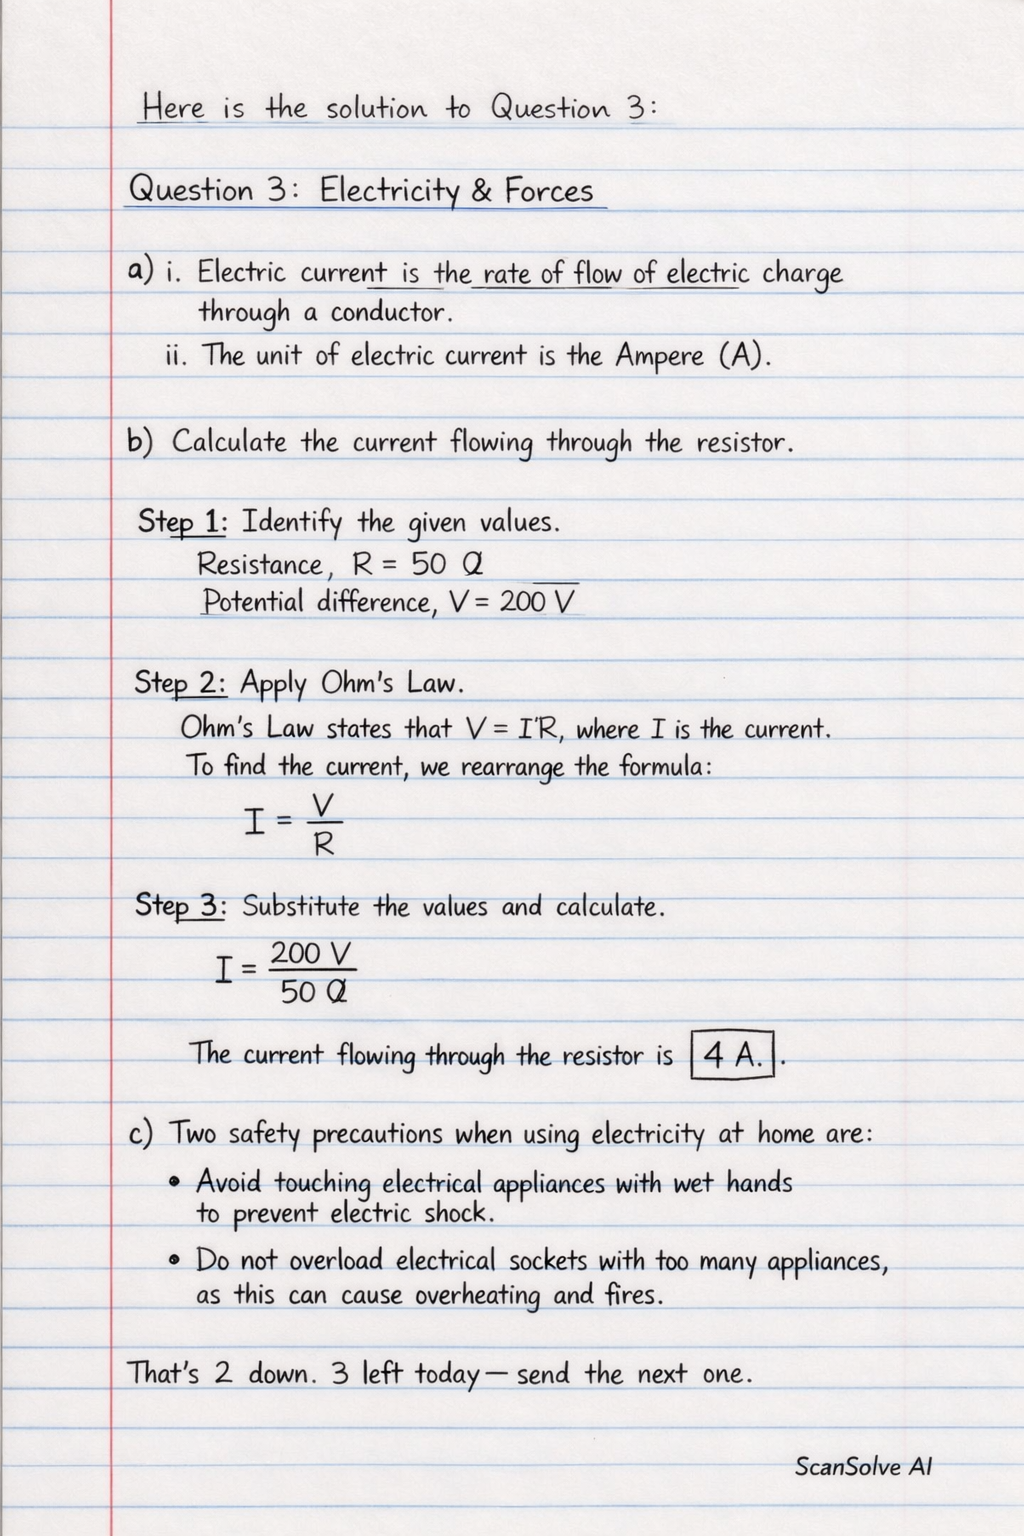 Here is the solution to Question 3:
Question 3: Electricity & Forces
a) i. Electric current is the rate of flow of electric charge
through a conductor.
ii. The unit of electric current is the Ampere (A).
b) Calculate the current flowing through the resistor.
Step 1: Identify the given values.
Resistance, R = 50 Ω
Potential difference, V = 200 V
Step 2: Apply Ohm's Law.
Ohm's Law states that V = I'R, where I is the current.
To find the current, we rearrange the formula:
I = V/R
Step 3: Substitute the values and calculate.
I = 200 V / 50 Ω
The current flowing through the resistor is 4 A. .
c) Two safety precautions when using electricity at home are:
• Avoid touching electrical appliances with wet hands
to prevent electric shock.
• Do not overload electrical sockets with too many appliances,
as this can cause overheating and fires.
That's 2 down. 3 left today — send the next one.
ScanSolve AI